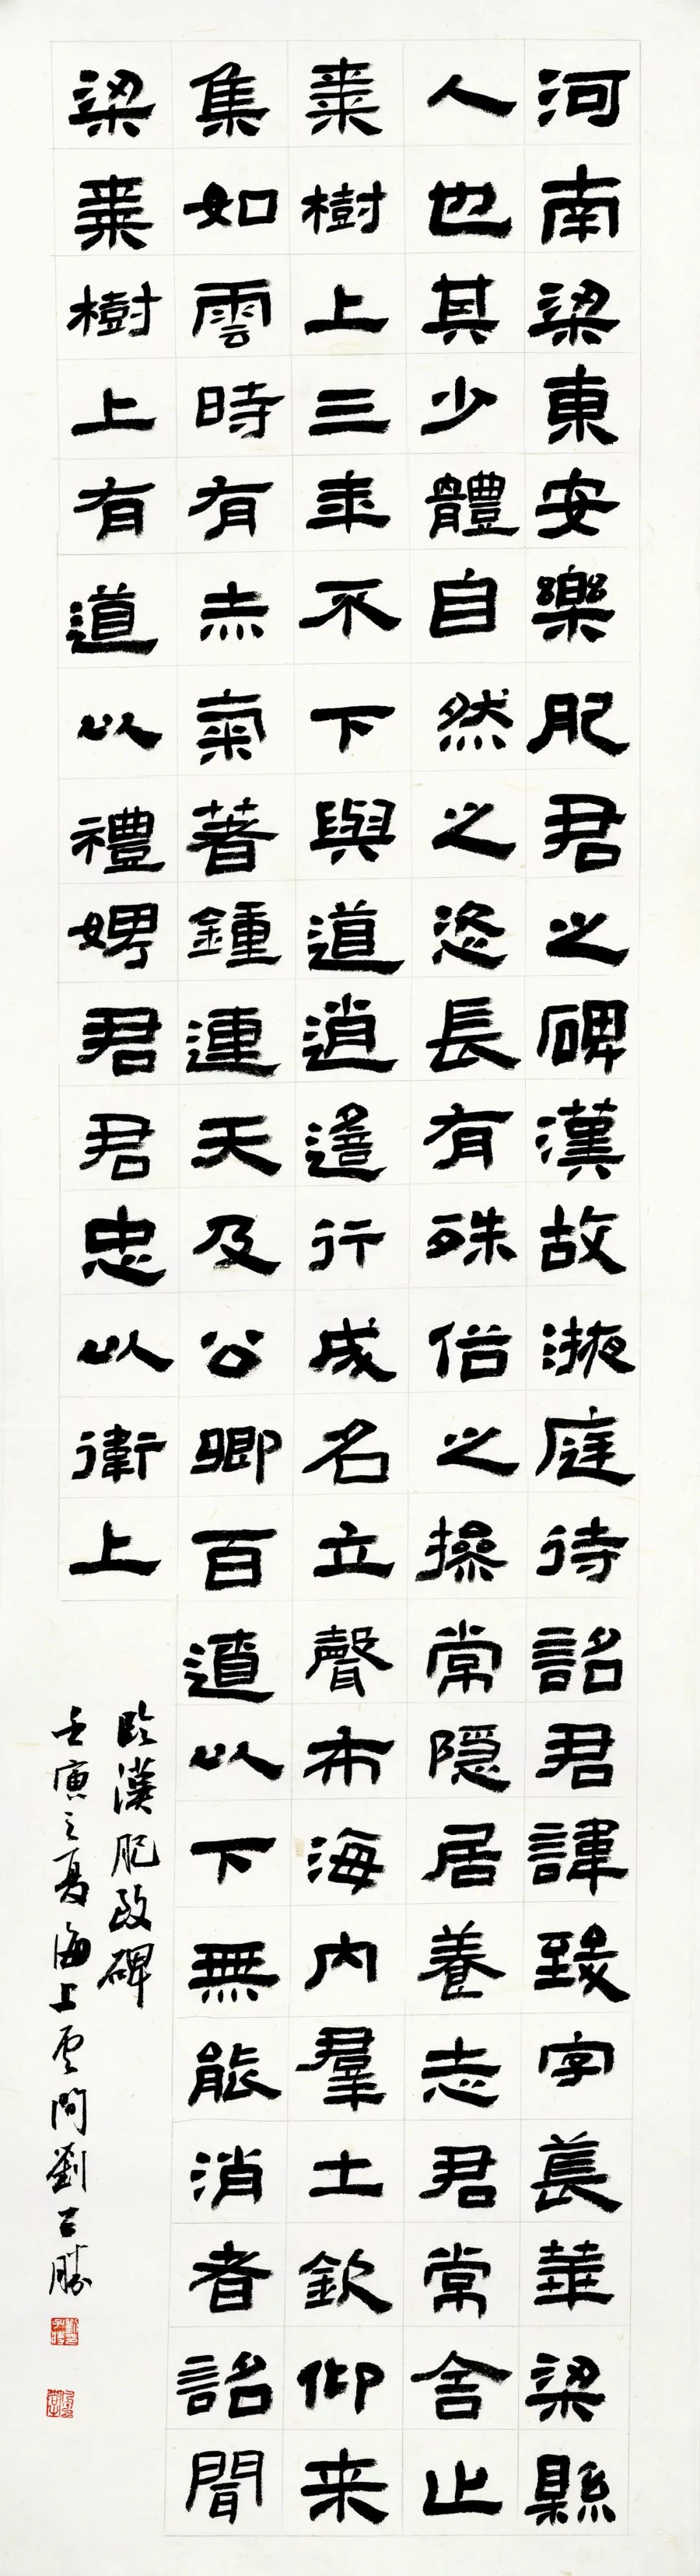 河南梁東安樂肥君之碑漢故掖庭待詔君諱致字萇華梁縣
人也其少體自然之恣長有殊俗之操常隱居養志君常舍止
棗樹上三年不下與道逍遙行成名立聲布海內羣士欽仰来
集如雲時有赤氣著鍾連天及公卿百遼以下無能消者詔聞
梁棗樹上有道以禮娉君君忠以衛上
臨漢肥致碑
壬寅之夏海上雲間劉公勝